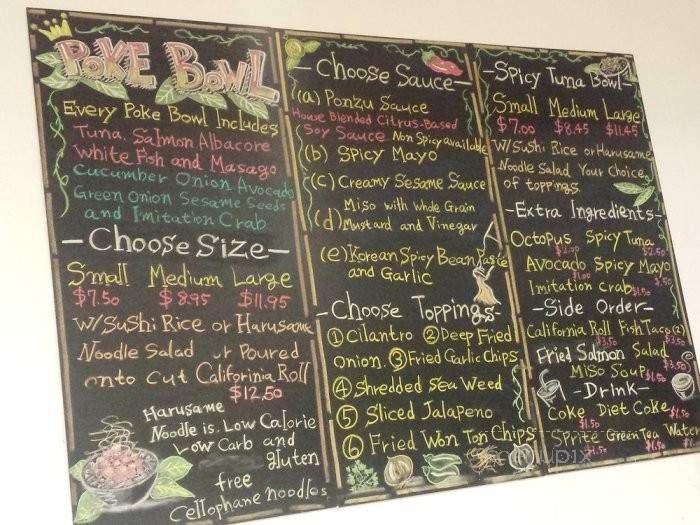 POKE BOWL
Every Poke Bowl Includes
Tuna, Salmon Albacore
White Fish and Masago
Cucumber Onion Avocado
Green Onion Sesame Seeds
and Imitation Crab
-Choose Size-
Small Medium Large
$7.50 $8.95 $11.95
W/Sushi Rice or Harusame
Noodle Salad or Poured
onto Cut Califorinia Roll
$12.50
Harusame
Noodle is. Low Calorie
Low Carb and
gluten
free
Cellophane noodles
-Choose Sauce-
(a) Ponzu Sauce
House Blended Citrus-Based
Soy Sauce Non Spicy available
(b) Spicy Mayo
(c) Creamy Sesame Sauce
Miso with Whole Grain
(d) Mustard and Vinegar
(e) Korean Spicy Bean Paste
and Garlic
-Choose Toppings-
① Cilantro ② Deep Fried
Onion. ③ Fried Garlic Chips
④ Shredded Sea Weed
⑤ Sliced Jalapeno
⑥ Fried Won Ton Chips
-Spicy Tuna Bowl-
Small Medium Large
$7.00 $8.45 $11.45
W/Sushi Rice or Harusame
Noodle Salad Your Choice
of toppings
-Extra Ingredients-
Octopus Spicy Tuna
$2.50
Avocado Spicy Mayo
$1.00 $.50
Imitation Crab $1.50
-Side Order-
California Roll Fish Taco (2)
$3.50
Fried Salmon Salad
$3.50
Miso Soup $1.50
-Drink-
Coke Diet Coke $1.50
$1.50
Sprite Green Tea Water
$1.50